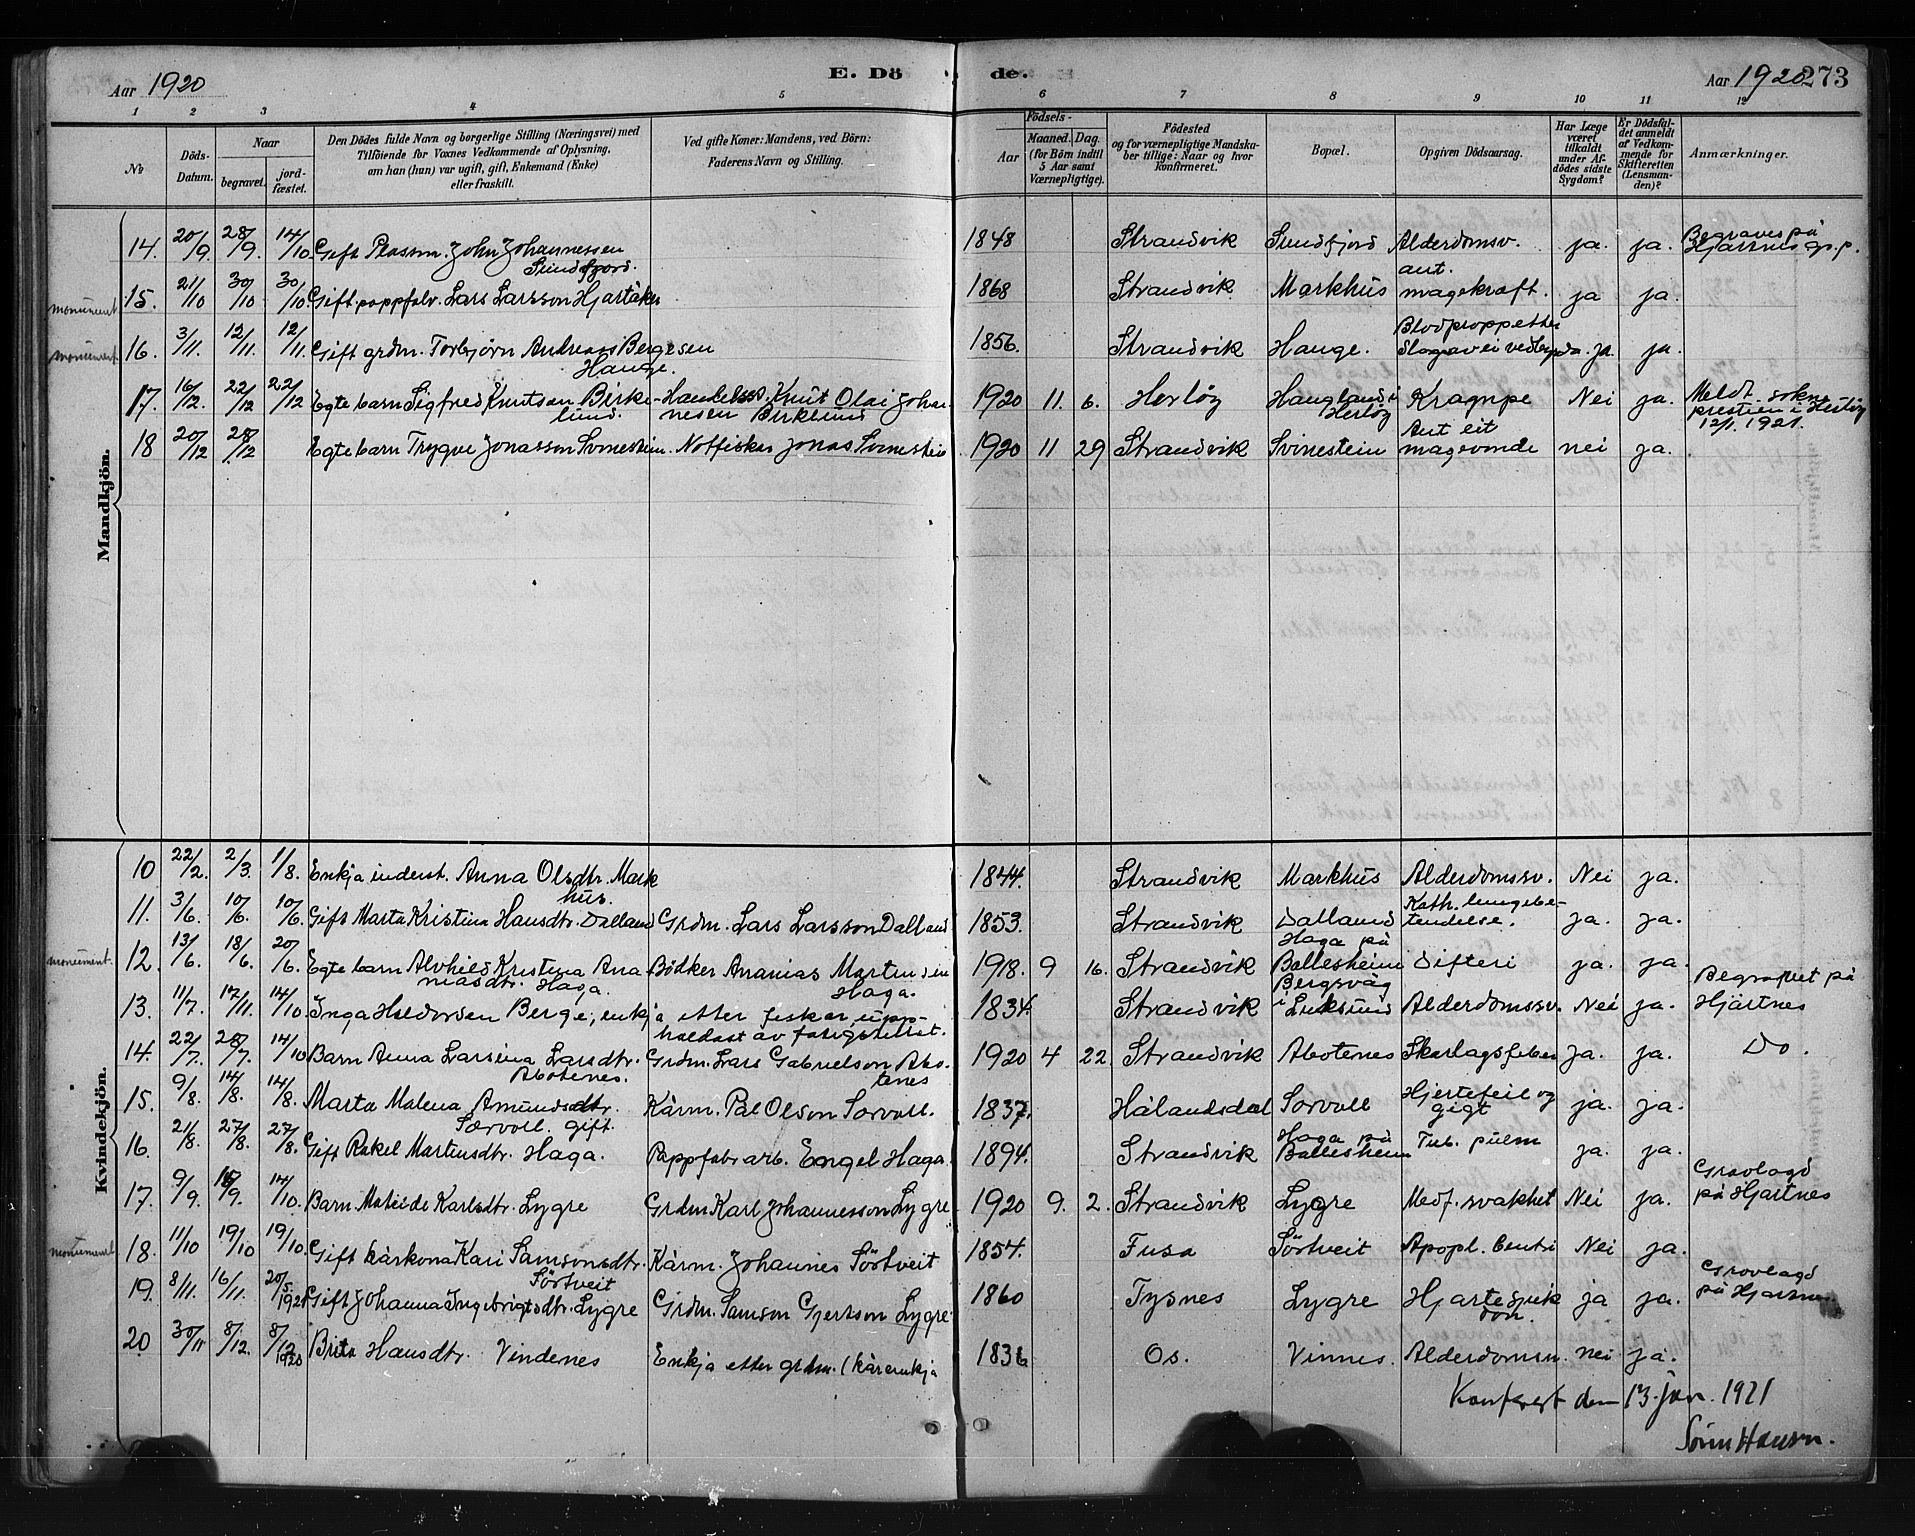 Aar 1920
E. Dö
de.
Aar 1920 273
1 2 3 4 5 6 7 8 9 10 11 12
No
Döds-Datum.
Naar
begravet.
jord-fæstet.
Den Dödes fulde Navn og borgerlige Stilling (Næringsvei) med
Tilföiende for Voxnes Vedkommende af Oplysning,
om han (hun) var ugift, gift, Enkemand (Enke)
eller fraskilt.
Ved gifte Koner: Mandens, ved Börn:
Faderens Navn og Stilling.
Födsels-
Aar
Maaned. Dag.
(for Börn indtil
5 Aar samt
Værnepligtige).
Födested
og for værnepligtige Mandska-
ber tillige: Naar og hvor
konfirmeret.
Bopæl.
Opgiven Dödsaarsag.
Har Læge
været
tilkaldt
under Af-
dödes sidste
Sygdom?
Er Dödsfal-
det anmeldt
af Vedkom-
mende for
Skifteretten
(Lensman-
den)?
Anmærkninger.
Mandkjön.
14. 20/9 28/9. 14/10. Gift Plassm. John Johannessen Sundfjord. 1848 Strandvik Sundfjord Alderdomsv. ja. ja. Begraves på Hjartnes gr.p.
monument 15. 21/10 30/10 30/10 Gift pappfabr. Lars Larsson Hjartåker 1868 Strandvik. Markhus ant. magekræft. ja ja.
monument. 16. 3/11. 12/11. 12/11. Gift grdm. Torbjørn Andreas Bergesen Hauge. 1856. Strandvik Hauge. Blodpropp etter ja. ja.
17. 16/12. 22/12 22/12 Egte barn Sigfred Knutson Birkelund. Knut Olai Johannesen Birklund 1920 11. 6. Herløy Haugland i Herløy Krampe Nei ja. Meldt sokneprestien i Herløy 12/1. 1921.
18 20/12 28/12 Egte barn Trygve Jonasson Svinestein. Notfisker Jonas Svinestein 1920 11 29 Strandvik Svinestein Ant eit magevonde nei ja.
Kvindekjön.
10 22/2. 2/3. 1/8. Enkja inderst. Anna Olsdtr. Markhus. 1844. Strandvik Markhus Alderdomssv. Nei ja.
11. 3/6. 10/6. 10/6. Gift Marta Kristina Hansdtr. Dalland Grdm. Lars Larsson Dalland 1853. Strandvik Dalland Kath. lungebetendelse. ja. ja.
monument. 12. 13/6. 18/6. 20/6. Egte barn Alvhild Kristina Ananiasdtr. Haga. Bödker Ananias Martinsen Haga. 1918. 9 16. Strandvik Haga på Ballesheim Difteri ja. ja.
13. 11/7. 17/11. 14/10. Inga Haldorsen Berge, enkja etter fisker, uppheldast av forsigtelsst. 1834. Strandvik Bergsvåg i Luksund Alderdomssv. Nei ja. Begravet på Hjartnes
14. 22/7. 28/7. 14/10 Barn Anna Larsina Larsdtr. Abotenes. Grdm. Lars Gabrielson Abotenes 1920 4 22. Strandvik Abotenes Skarlagsfeber ja. ja. Do.
15. 9/8. 14/8. 14/8. Marta Malena Amundsdtr. Sørvoll. gift. Kårm. Pål Olson Sørvoll. 1837. Hålandsdal Sørvoll Hjertefeil og gigt ja. ja.
16. 21/8. 27/8. 27/8. Gift Rakel Martinsdtr. Haga. Pappfabr arb. Engel Haga. 1894. Strandvik Haga på Ballesheim Tub. pulm ja. ja.
17. 9/9. 16/9. 14/10. Barn Matilde Karlsdtr. Lygre Grdm Karl Johannesson Lygre 1920 9. 2. Strandvik Lygre Medf. svakhet Nei ja. Gravlagd på Hjartnes
monument 18. 11/10 19/10 19/10. Gift kårkona Kari Samsonsdtr. Sörtveit Kårm. Johannes Sörtveit 1854. Fusa Sörtveit Apopl. Nei ja.
19. 8/11. 16/11. 20/5. 1921 Gift Johanna Ingebrigtsdtr. Lygre Grdm. Samson Gjertson Lygre 1860 Tysnes Lygre Hjarte ja ja. Gravlagd på Hjartnes
20 30/11 8/12. 8/12 1920 Brita Hansdtr. Vindenes Enkja etter grdm. (kårenkja 1836 Os. Vinnes. Alderdomsv. nei ja.
Konferert den 13. jan. 1921
Sören Hansen.